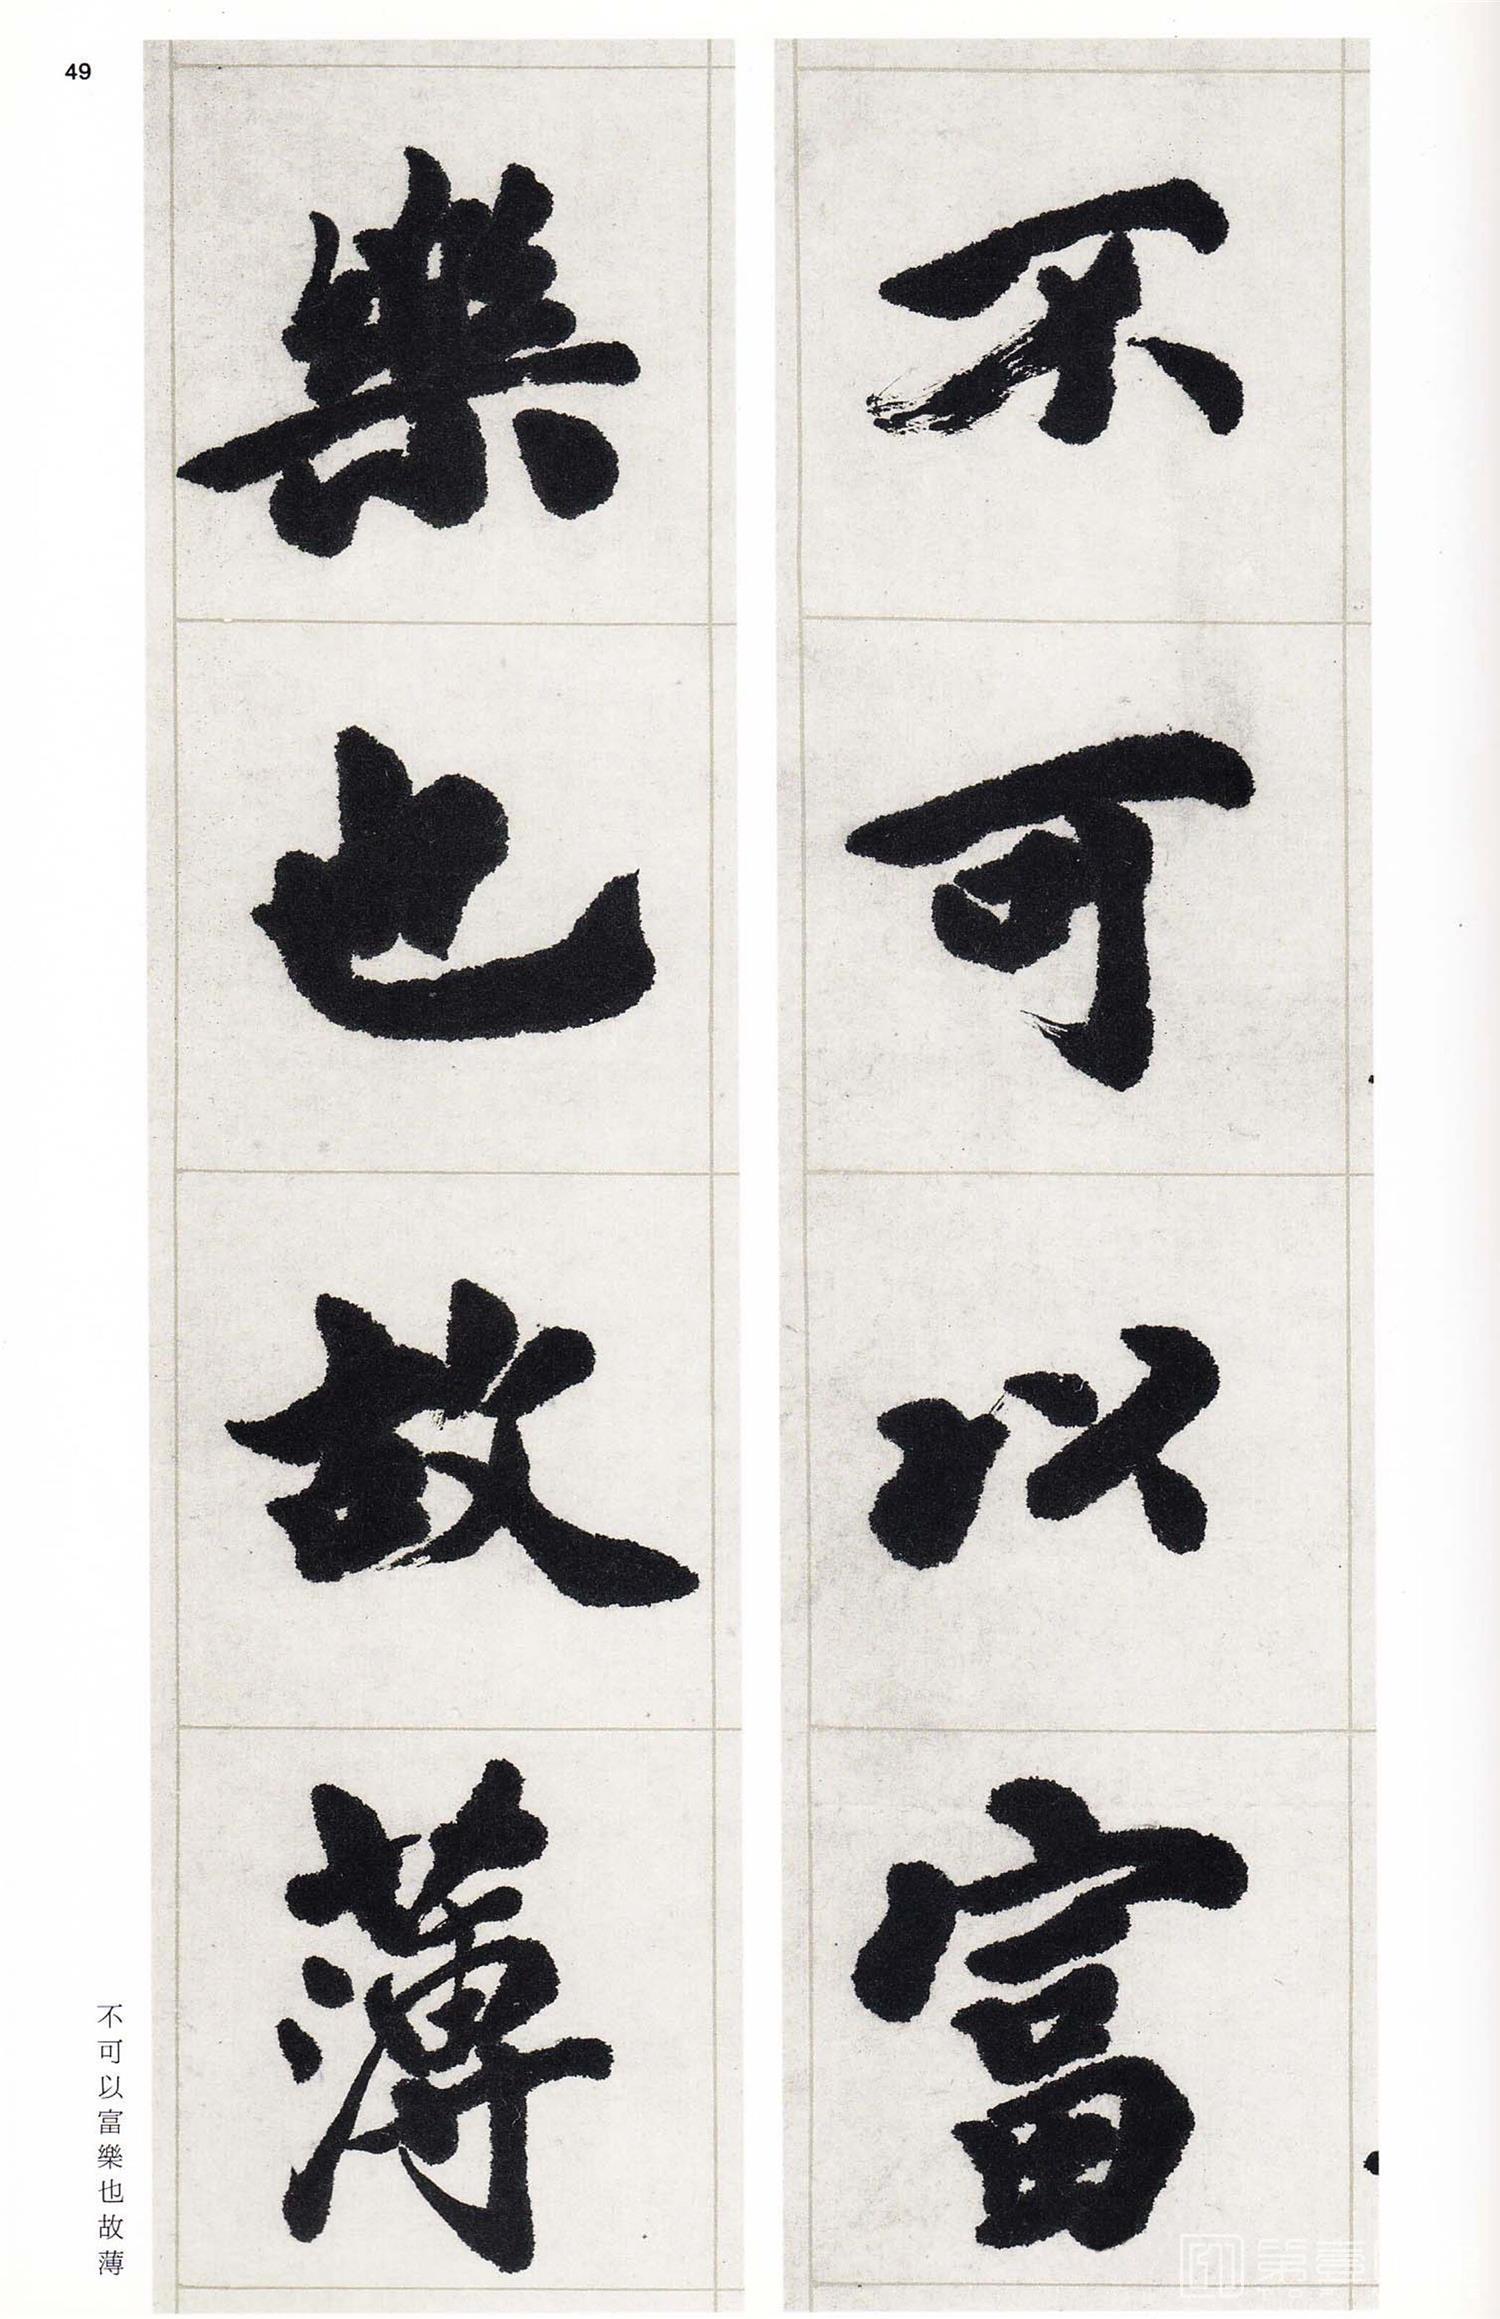 49
不可以富
樂也故薄
不可以富樂也故薄
第壹